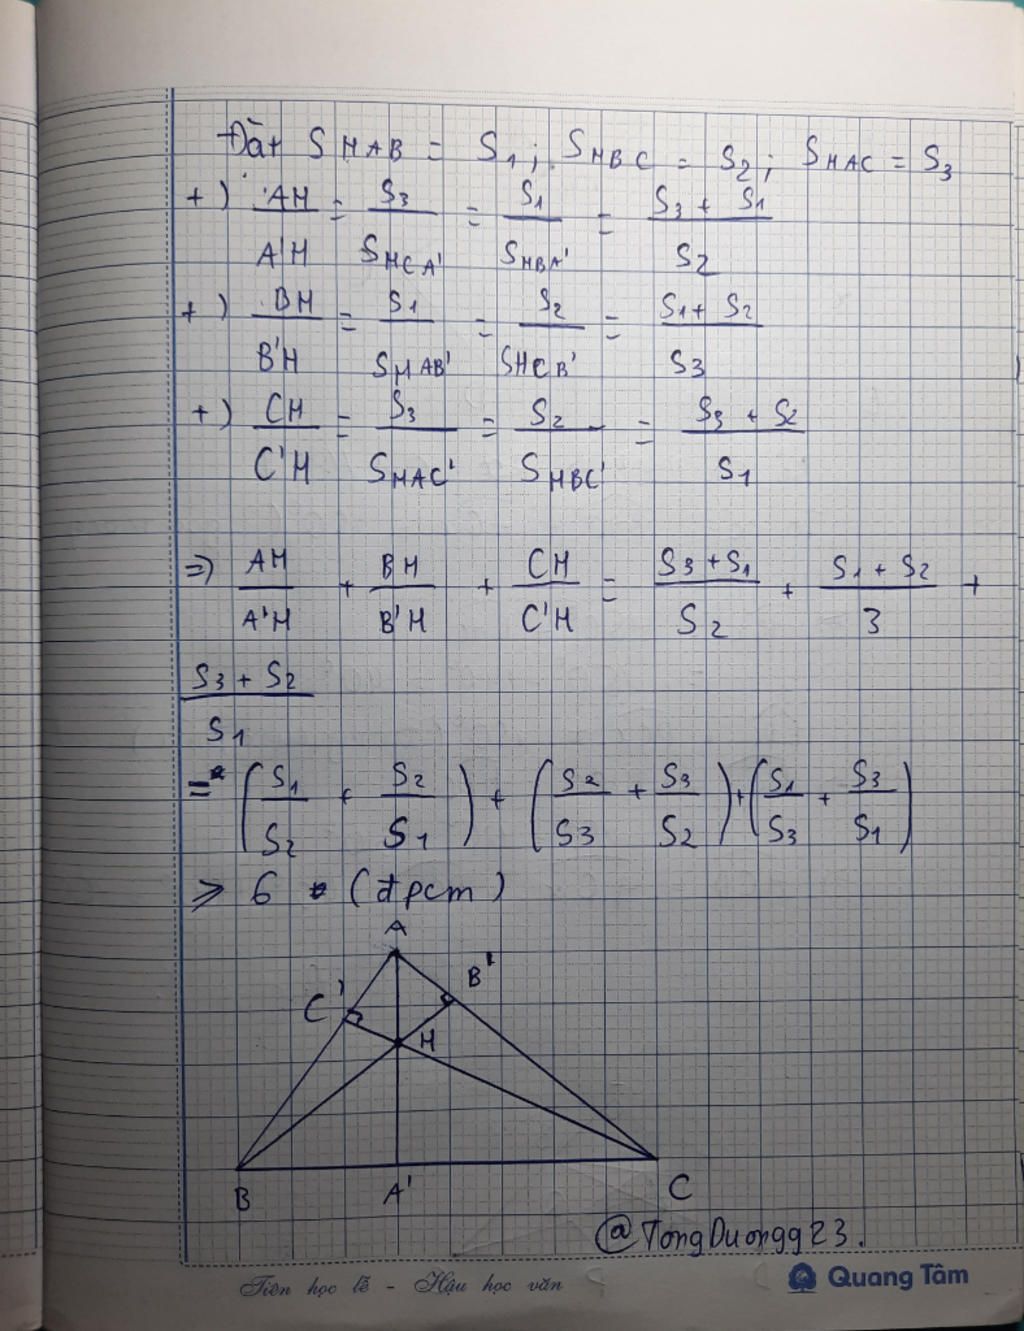 Đặt S HAB = S1; SHBC = S2; SHAC = S3
+) AH/A'H = S3/SHCA' = S1/SHBA' = (S3 + S1)/S2
+) BH/B'H = S1/SHAB' = S2/SHCB' = (S1 + S2)/S3
+) CH/C'H = S3/SHAC' = S2/SHBC' = (S3 + S2)/S1
=> AH/A'H + BH/B'H + CH/C'H = (S3 + S1)/S2 + (S1 + S2)/3 +
(S3 + S2)/S1
= (S1/S2 + S2/S1) + (S2/S3 + S3/S2) + (S1/S3 + S3/S1)
≥ 6 (đpcm)
A
B'
C'
H
B
A'
C
@TongDuongg23.
Tiên học lễ - Hậu học văn
Quang Tâm